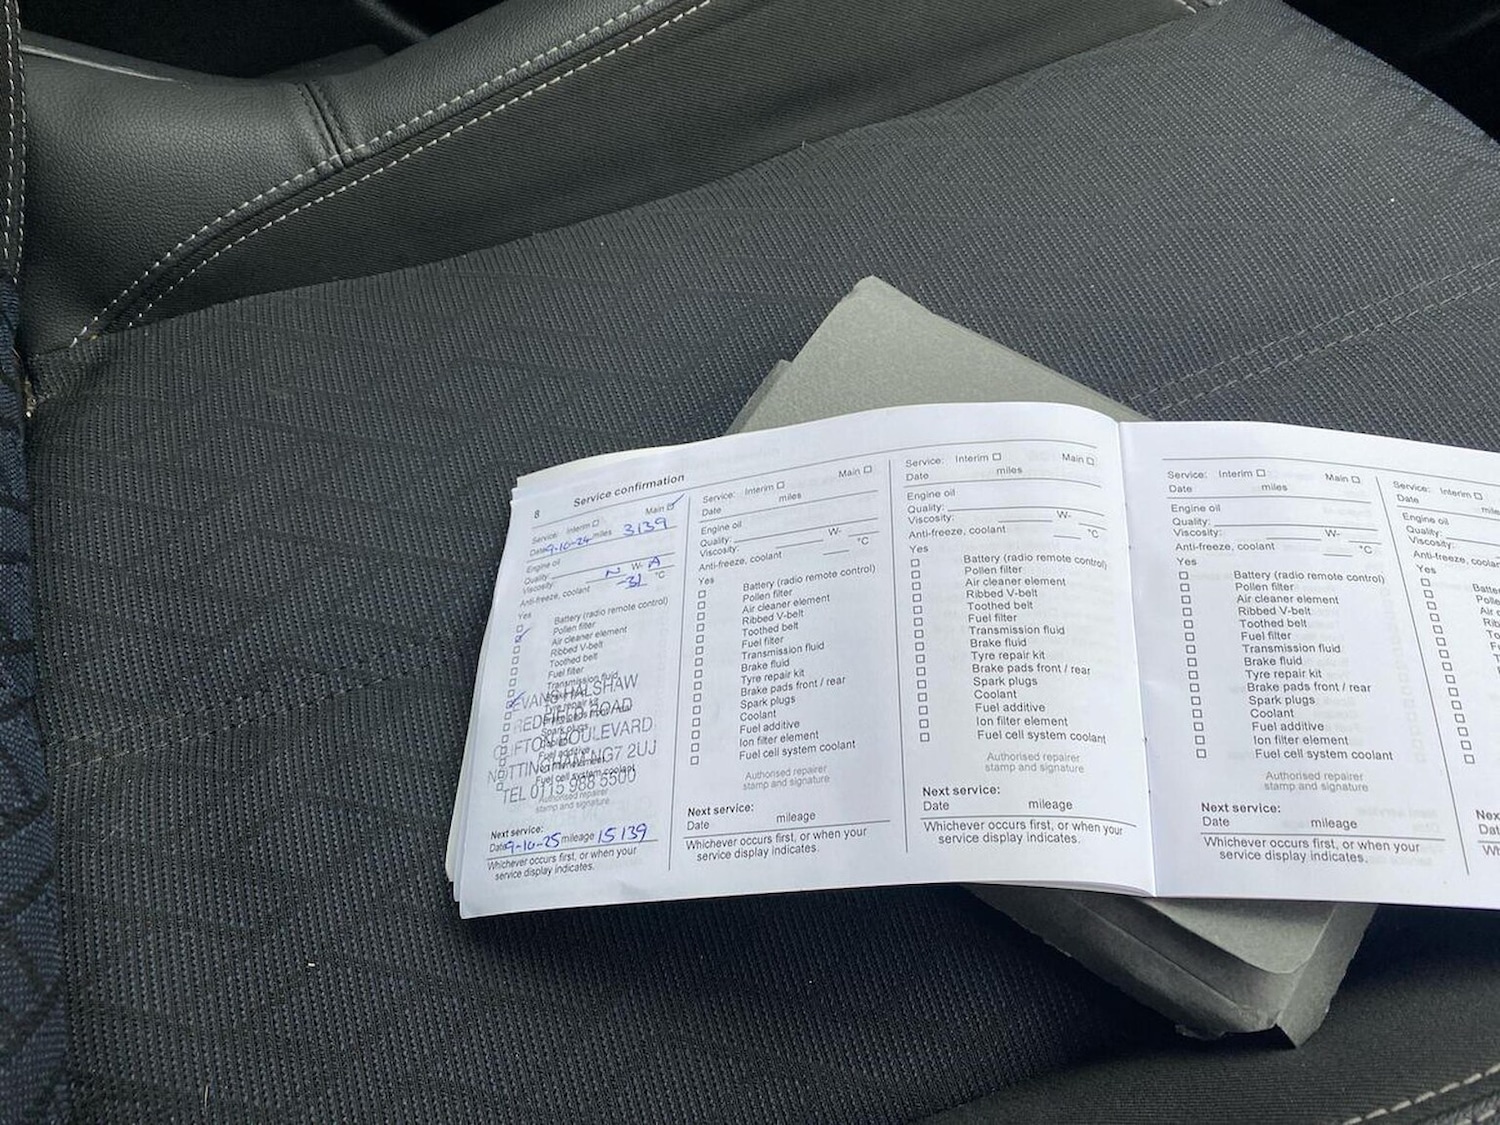 8 Service confirmation
Service: Interim Main
Date 9-10-24 miles 3139
Engine oil
Quality: N W- A
Viscosity:
Anti-freeze, coolant -31 °C
Yes
Battery (radio remote control)
Pollen filter
Air cleaner element
Ribbed V-belt
Toothed belt
Fuel filter
Transmission fluid
EVANS HALSHAW
Tyre repair kit
REDFIELD ROAD
CLIFTON BOULEVARD
NOTTINGHAM NG7 2UJ
Fuel cell system coolant
TEL 0115 988 5500
Authorised repairer
stamp and signature
Next service:
Date 9-10-25 mileage 15139
Whichever occurs first, or when your
service display indicates.
Service: Interim Main
Date miles
Engine oil
Quality: W-
Viscosity:
Anti-freeze, coolant °C
Yes
Battery (radio remote control)
Pollen filter
Air cleaner element
Ribbed V-belt
Toothed belt
Fuel filter
Transmission fluid
Brake fluid
Tyre repair kit
Brake pads front / rear
Spark plugs
Coolant
Fuel additive
Ion filter element
Fuel cell system coolant
Authorised repairer
stamp and signature
Next service:
Date mileage
Whichever occurs first, or when your
service display indicates.
Service: Interim Main
Date miles
Engine oil
Quality: W-
Viscosity:
Anti-freeze, coolant °C
Yes
Battery (radio remote control)
Pollen filter
Air cleaner element
Ribbed V-belt
Toothed belt
Fuel filter
Transmission fluid
Brake fluid
Tyre repair kit
Brake pads front / rear
Spark plugs
Coolant
Fuel additive
Ion filter element
Fuel cell system coolant
Authorised repairer
stamp and signature
Next service:
Date mileage
Whichever occurs first, or when your
service display indicates.
Service: Interim Main
Date miles
Engine oil
Quality: W-
Viscosity:
Anti-freeze, coolant °C
Yes
Battery (radio remote control)
Pollen filter
Air cleaner element
Ribbed V-belt
Toothed belt
Fuel filter
Transmission fluid
Brake fluid
Tyre repair kit
Brake pads front / rear
Spark plugs
Coolant
Fuel additive
Ion filter element
Fuel cell system coolant
Authorised repairer
stamp and signature
Next service:
Date mileage
Whichever occurs first, or when your
service display indicates.
Service: Interim
Date mile
Engine oil
Quality:
Viscosity:
Anti-freeze, coolan
Yes